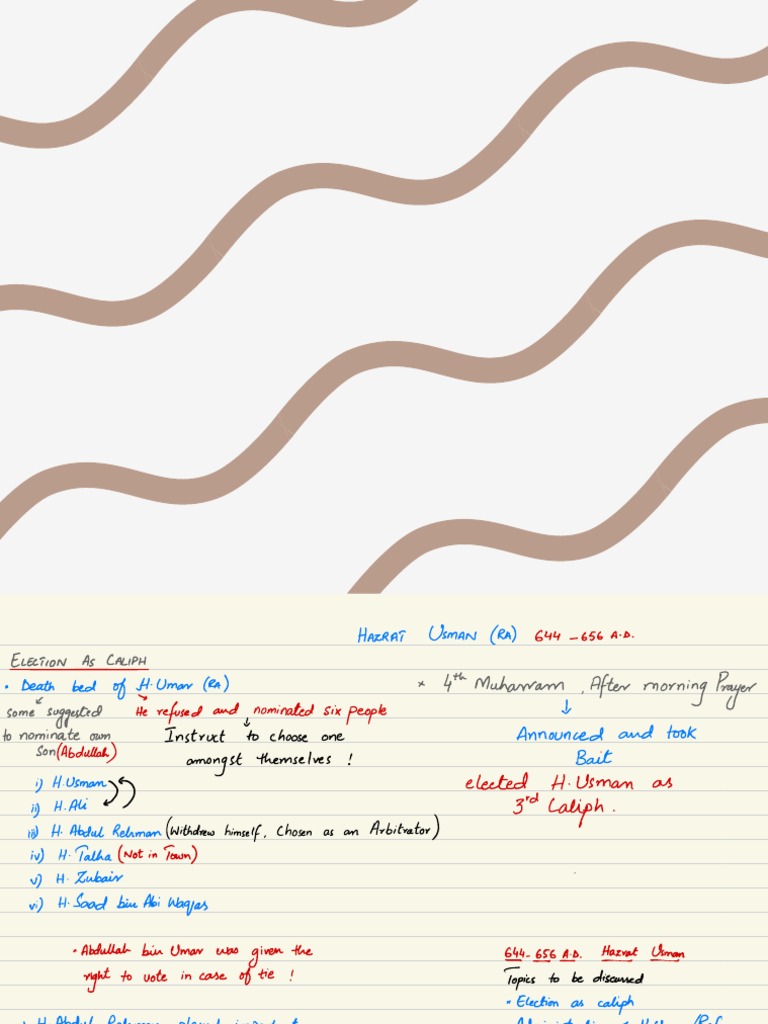 HAZRAT USMAN (RA) 644 - 656 A.D.
ELECTION AS CALIPH
• Death bed of H.Umar (RA)
some suggested
to nominate own
son (Abdullah)
He refused and nominated six people
Instruct to choose one
amongst themselves !
i) H.Usman
ii) H.Ali
iii) H. Abdul Rehman (Withdrew himself, Chosen as an Arbitrator)
iv) H. Talha (Not in Town)
v) H. Zubair
vi) H. Saad bin Abi Waqas
• Abdullah bin Umar was given the
right to vote in case of tie !
H. Abdul Rehman played important
* 4th Muharram , After morning Prayer
Announced and took
Bait
elected H.Usman as
3rd Caliph .
644-656 A.D. Hazrat Usman
Topics to be discussed
• Election as caliph